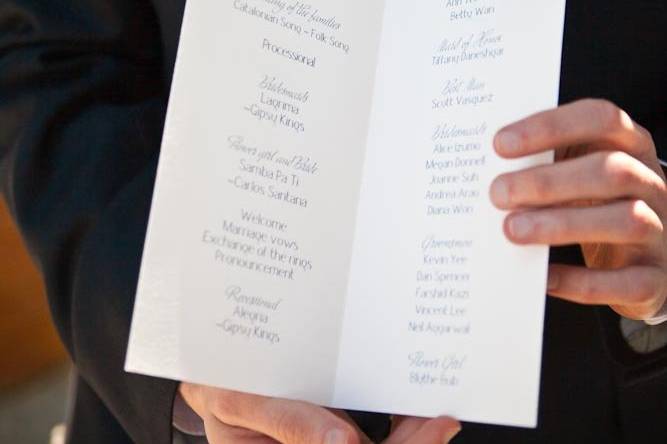 of the families
Catalonian Song – Folk Song
Processional
Bridesmaids
Lagrima
~Gipsy Kings
Flower girl and Bride
Samba Pa Ti
~Carlos Santana
Welcome
Marriage vows
Exchange of the rings
Pronouncement
Recessional
Alegria
~Gipsy Kings
Betty Wan
Maid of Honor
Tiffany Daneshgar
Best Man
Scott Vasquez
Bridesmaids
Alice Izumo
Megan Donnell
Joanne Suh
Andrea Arao
Diana Won
Groomsmen
Kevin Yee
Dan Spencer
Farshid Kazi
Vincent Lee
Neil Aggarwal
Flower Girl
Blythe